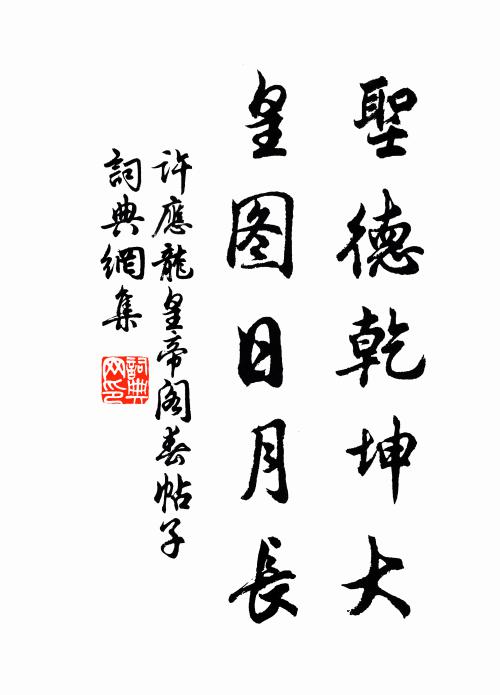 聖德乾坤大
皇图日月長
許應龍皇帝阁春帖子
詞典網集
詞典网印